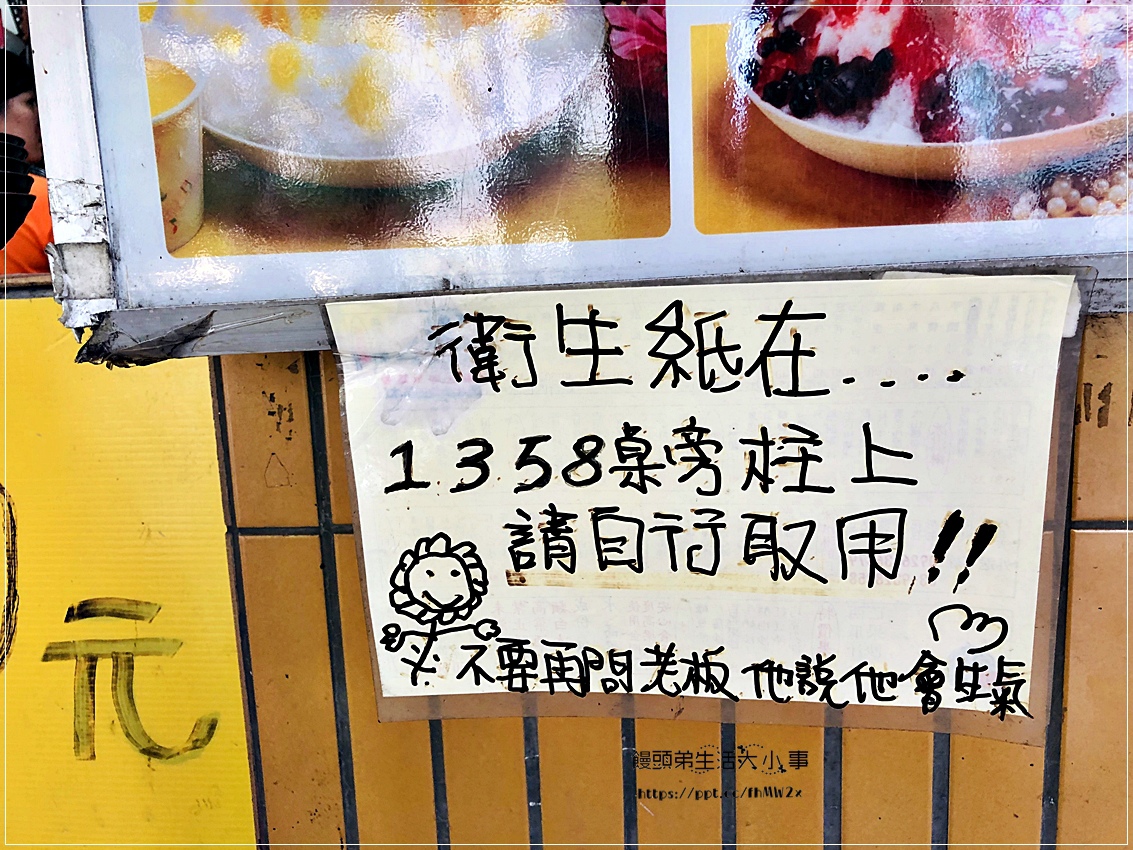 衛生紙在....
1358桌旁柱上
請自行取用!!
不要再問老板 他說他會生氣
元
饅頭弟生活大小事
https://ppt.cc/fhMW2x